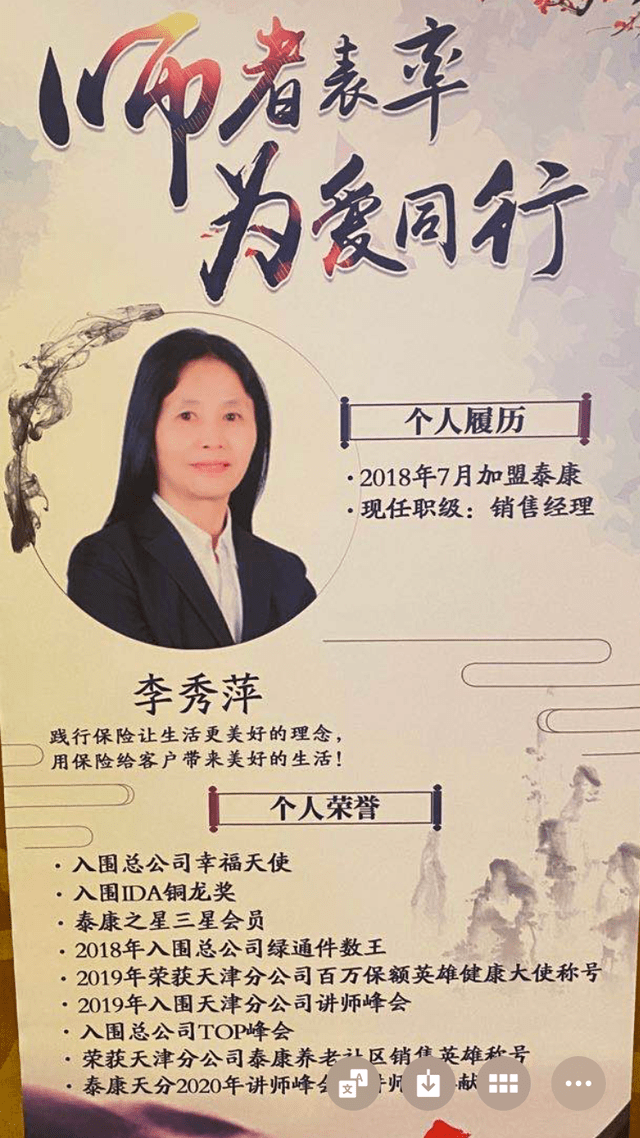 师者表率
为爱同行
个人履历
·2018年7月加盟泰康
·现任职级：销售经理
李秀萍
践行保险让生活更美好的理念，
用保险给客户带来美好的生活！
个人荣誉
·入围总公司幸福天使
·入围IDA铜龙奖
·泰康之星三星会员
·2018年入围总公司绿通件数王
·2019年荣获天津分公司百万保额英雄健康大使称号
·2019年入围天津分公司讲师峰会
·入围总公司TOP峰会
·荣获天津分公司泰康养老社区销售英雄称号
·泰康天分2020年讲师峰会 讲师 献